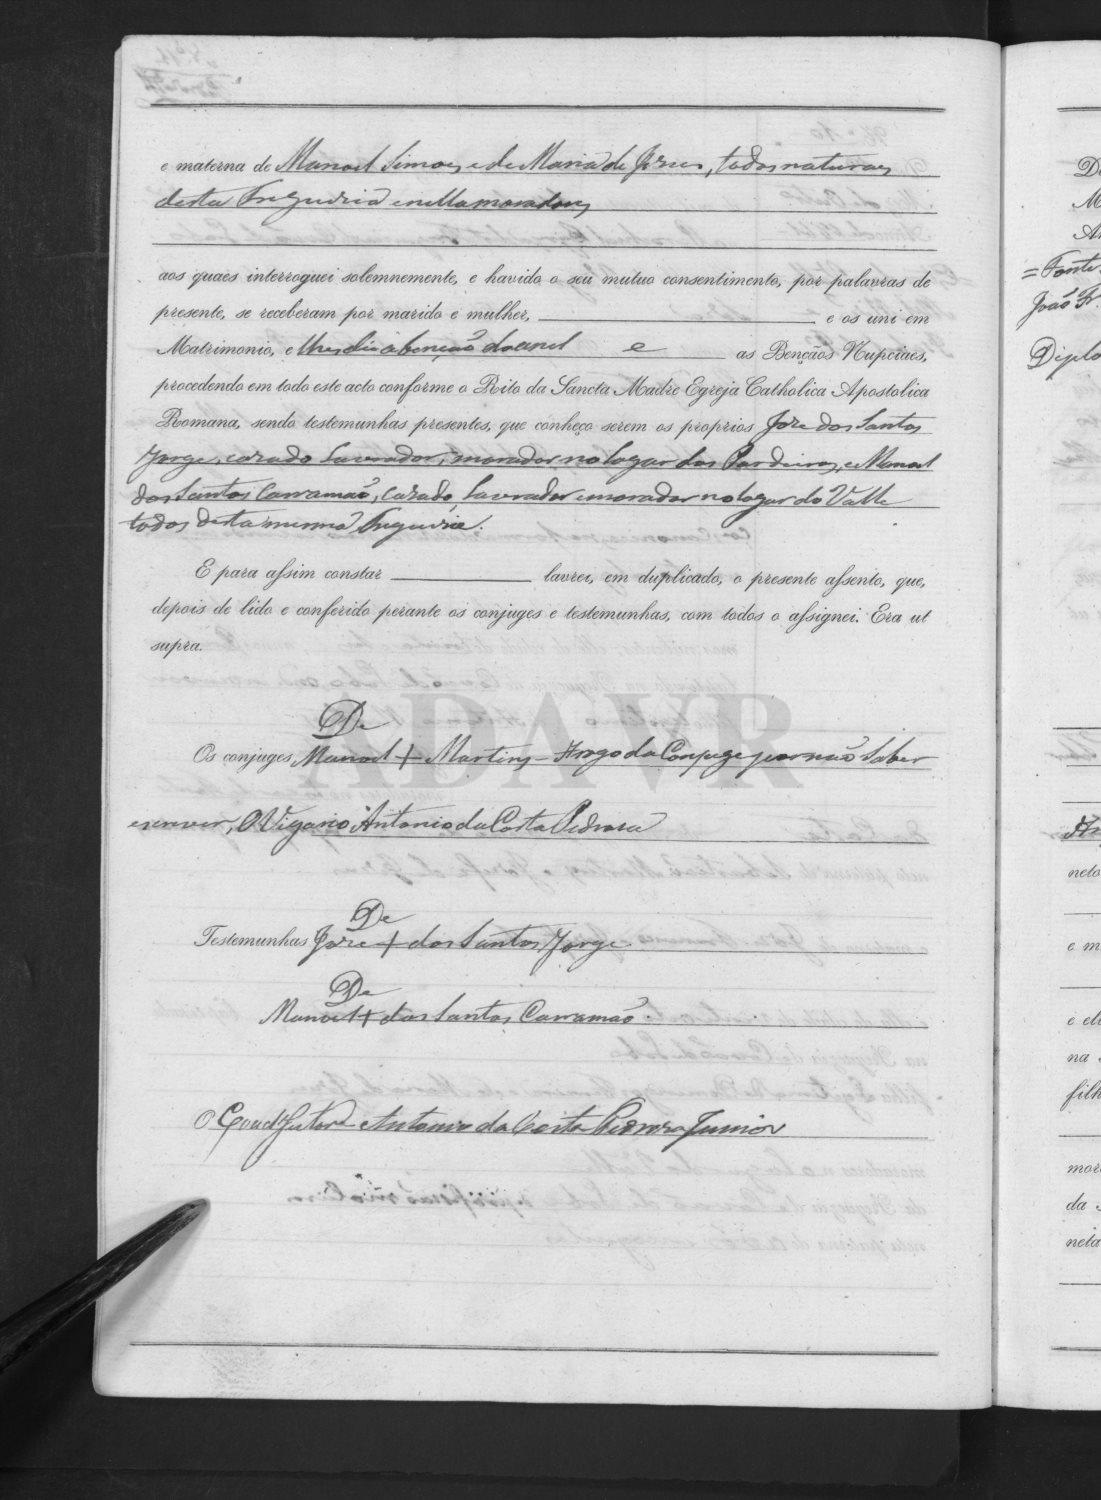 e materna de Manoel Simoes e de Maria de Jesus, todos naturaes
desta Freguesia e nella moradores
aos quaes interroguei solemnemente, e havido o seu mutuo consentimento, por palavras de
presente, se receberam por marido e mulher, e os uni em
Matrimonio, e lhes dei a benção do anel e as Bençãos Nupciaes,
procedendo em todo este acto conforme o Rito da Sancta Madre Egreja Catholica Apostolica
Romana, sendo testemunhas presentes, que conheço serem os proprios José dos Santos
Jorge, casado Lavrador, morador no logar dos Pardeiros, e Manoel
dos Santos Carramão, Casado, Lavrador e morador no logar do Valle
todos desta mesma Freguesia.
E para assim constar lavrei, em duplicado, o presente assento, que,
depois de lido e conferido perante os conjuges e testemunhas, com todos o assignei. Era ut
supra.
ADAVR
De
Os conjuges Manoel + Martins – A rogo da Conjuge por não saber
escrever, O Vigario Antonio da Costa Pedrosa
De
Testemunhas José + dos Santos Jorge
De
Manoel + dos Santos Carramão.
O Coadjutor Antonio da Costa Pedrosa Junior
De
M
= Fonte
João F.
Diplo
neto
e m
e el
na
filh
mor
da
neta